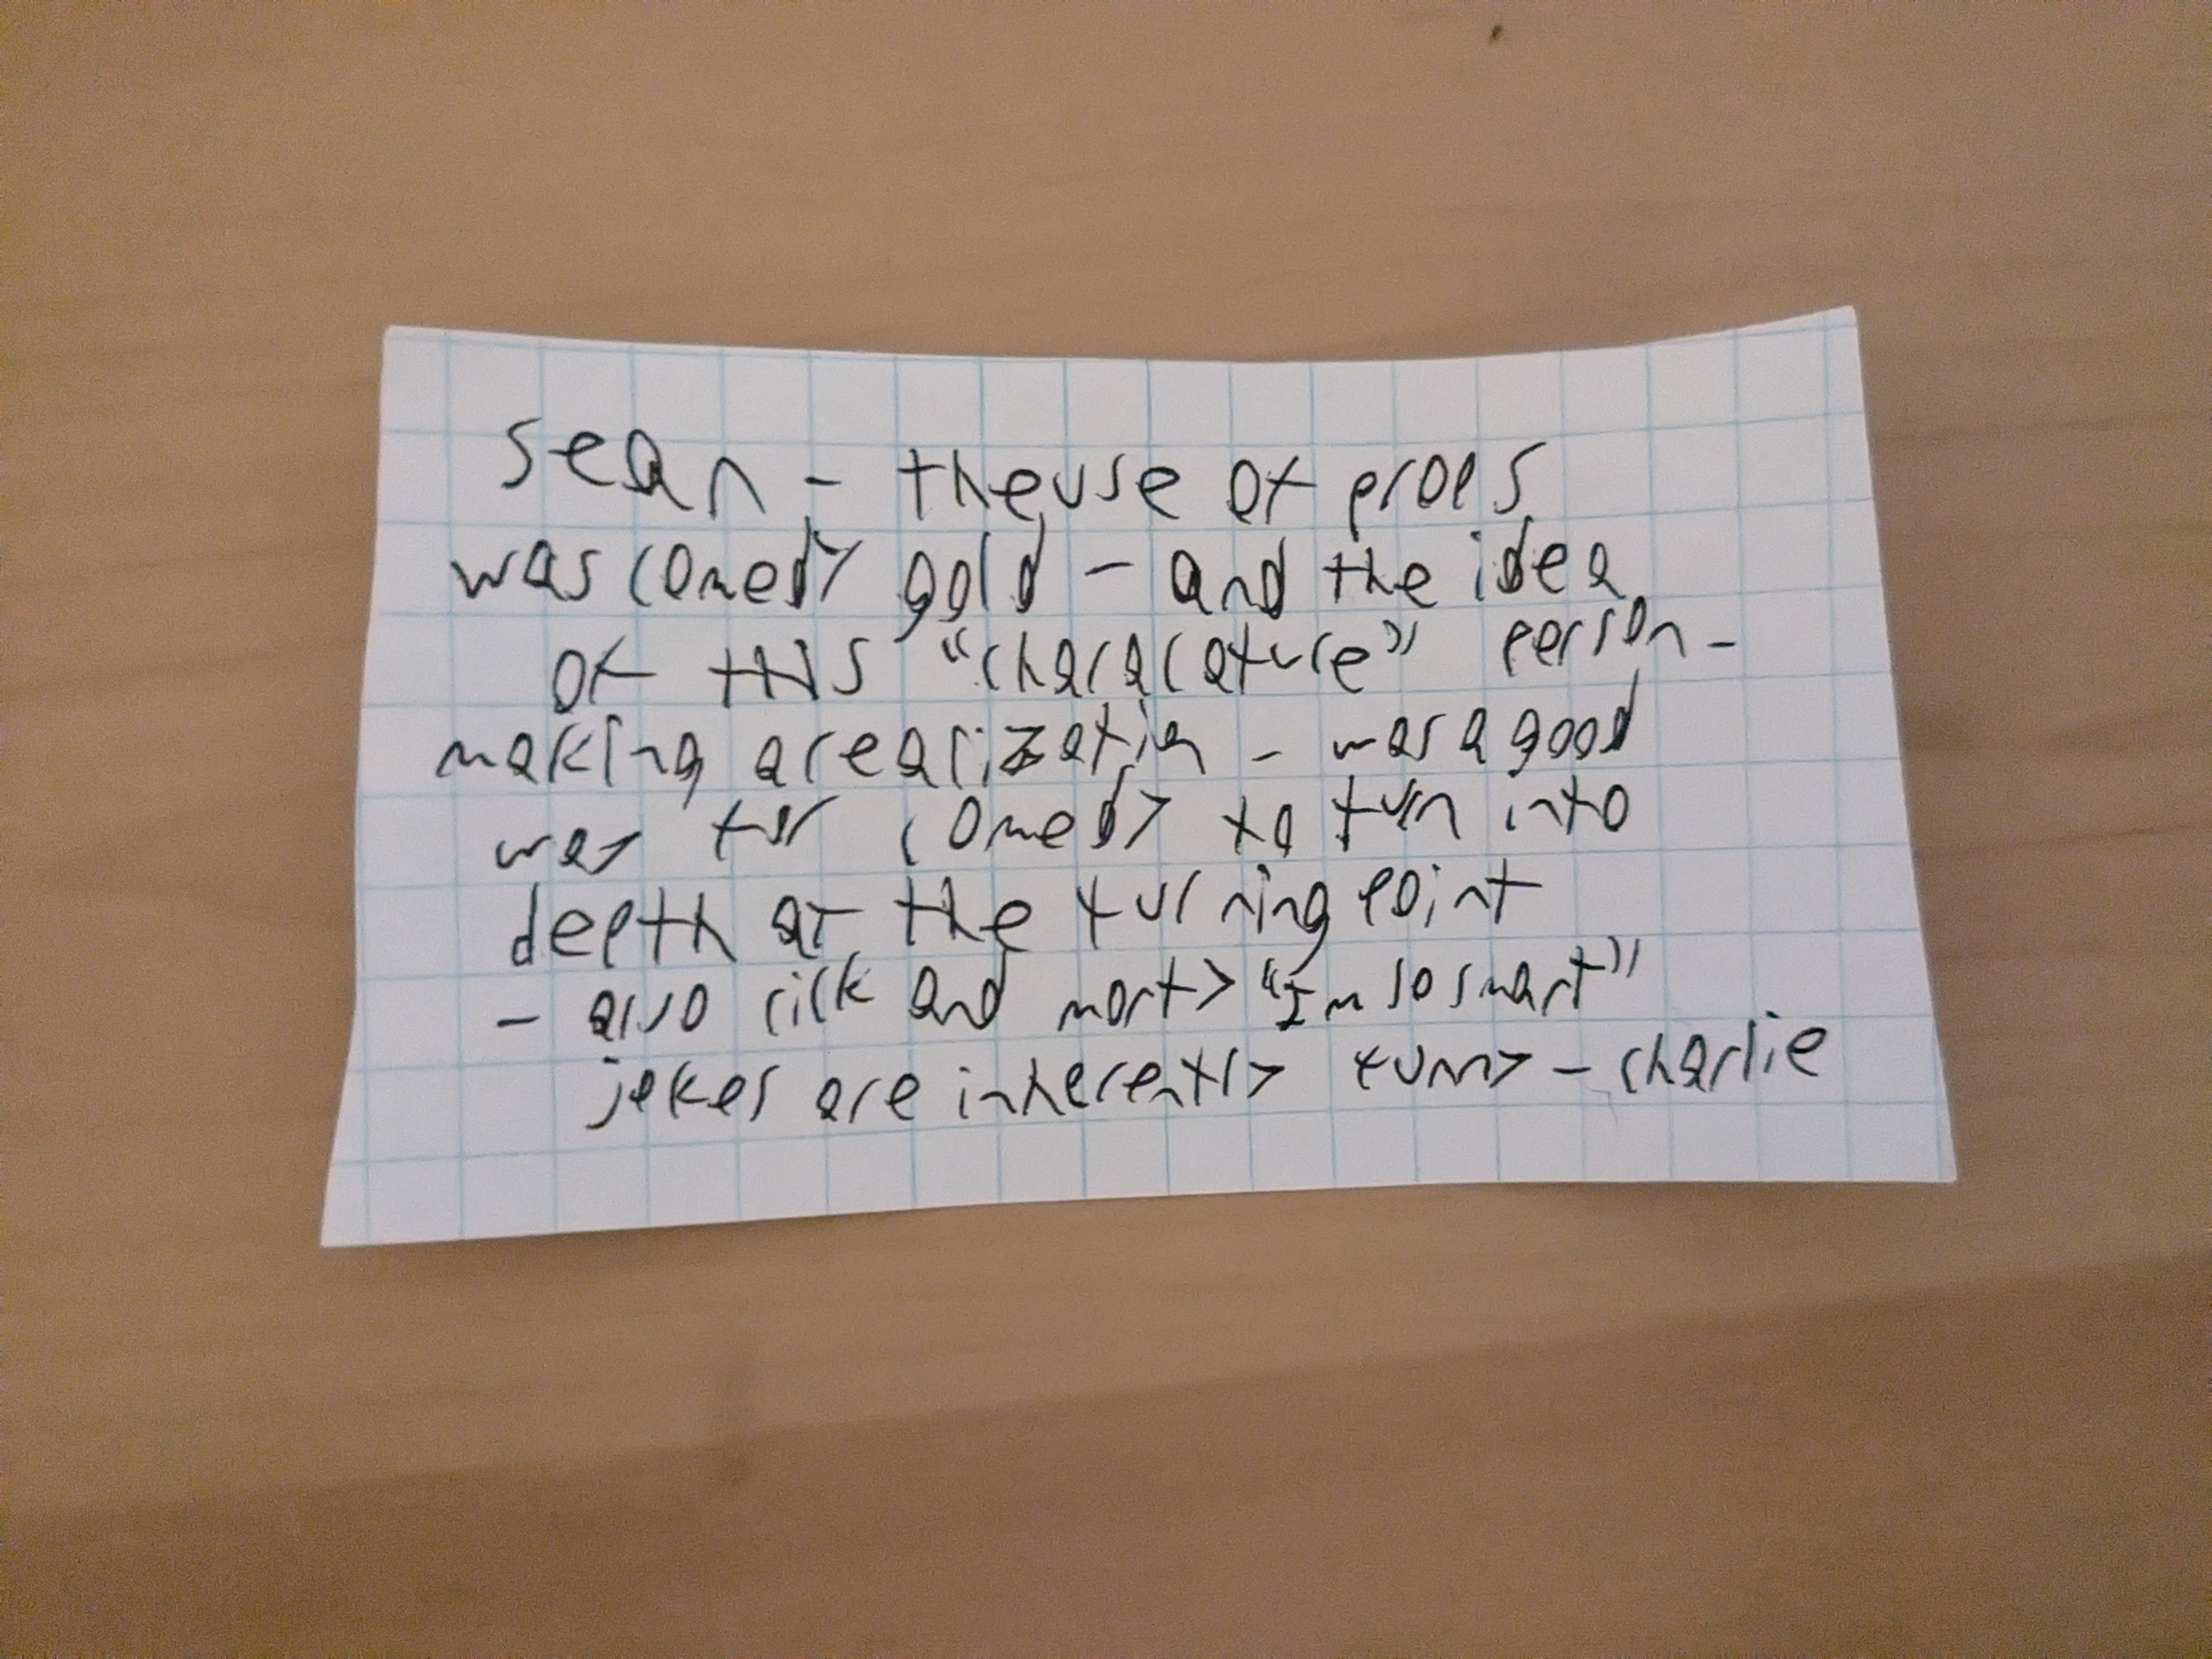 sean - the use of props
was comedy gold - and the idea
of this "characature" person -
making a realization - was a good
way for comedy to turn into
depth at the turning point
- also rick and morty "Im so smart"
jokes are inherently funny - charlie